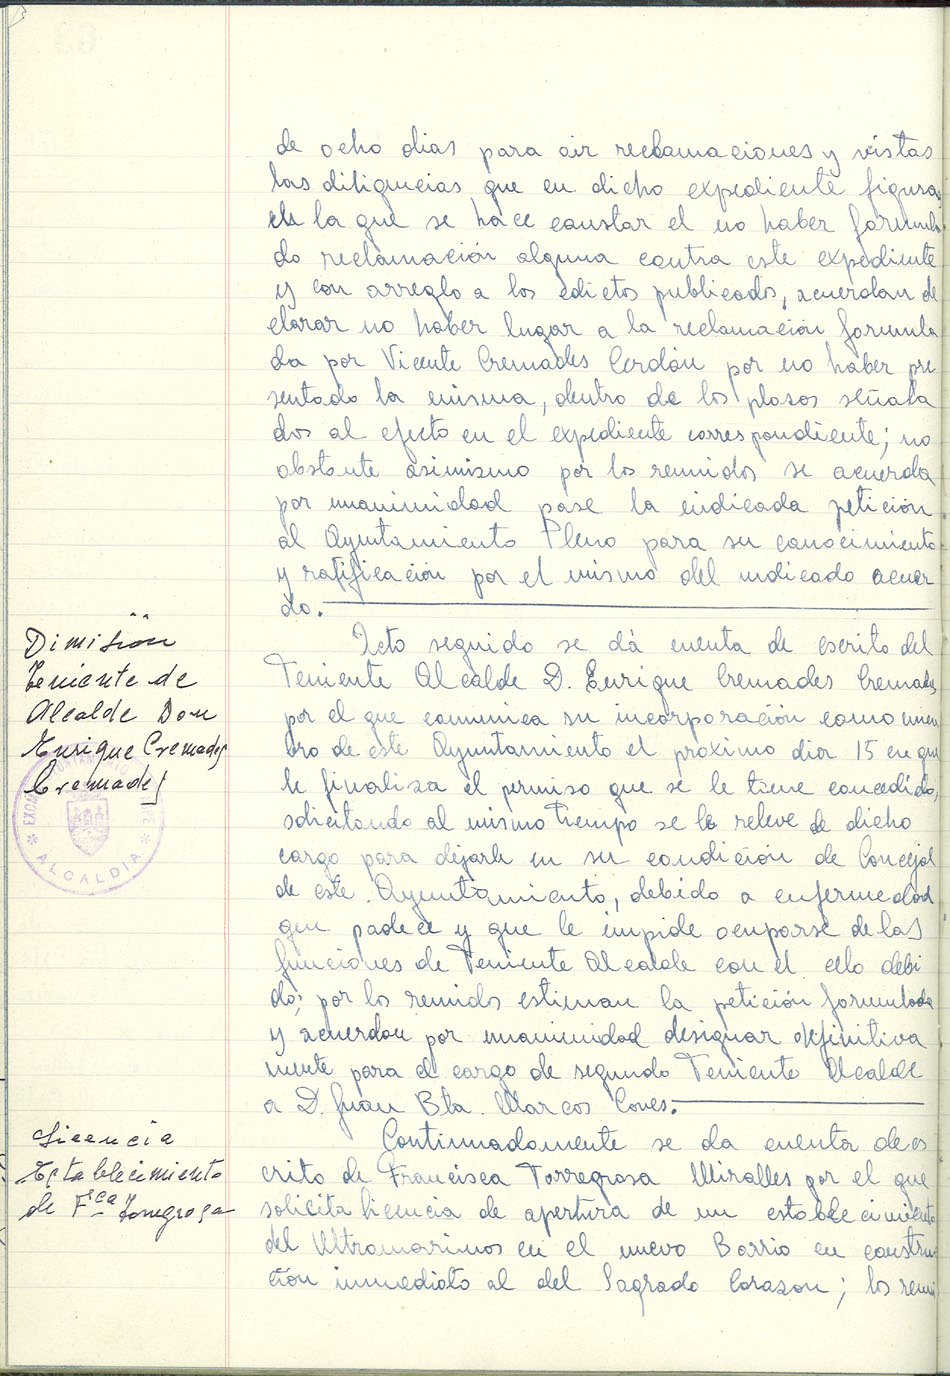 de ocho dias para oir reclamaciones y vistas
las diligencias que en dicho expediente figura,
en la que se hace constar el no haber formula
do reclamación alguna contra este expediente
y con arreglo a los edictos publicados, acuerdan de
clarar no haber lugar a la reclamación formula
da por Vicente Cremades Cerdán por no haber pre
sentado la misma, dentro de los plasos señala
dos al efecto en el expediente correspondiente; no
obstante asimismo por los reunidos se acuerda
por unanimidad pase la indicada petición
al Ayuntamiento Pleno para su conocimiento
y ratificación por el mismo del indicado acuer
do.
Dimisión
Teniente de
Alcalde Don
Enrique Cremades
Cremades
EXCMO. AYUNTAMIENTO DE
* ALCALDIA *
Acto seguido se dá cuenta de escrito del
Teniente Alcalde D. Enrique Cremades Cremades
por el que comunica su incorporación como miem
bro de este Ayuntamiento el proximo dia 15 en que
le finaliza el permiso que se le tiene concedido,
solicitando al mismo tiempo se le releve de dicho
cargo para dejarle en su condición de Concejal
de este Ayuntamiento, debido a enfermedad
que padece y que le impide ocuparse de las
funciones de Teniente Alcalde con el celo debi
do; por los reunidos estiman la petición formulada
y acuerdan por unanimidad designar definitiva
mente para el cargo de segundo Teniente Alcalde
a D. Juan Bta. Marcos Cones.
Licencia
Establecimiento
de Fca Torregrosa
Continuadamente se da cuenta de es
crito de Francisca Torregrosa Miralles por el que
solicita licencia de apertura de un establecimiento
del Ultramarinos en el nuevo Barrio en constru
ción inmediato al del Sagrado Corazon; los reuni